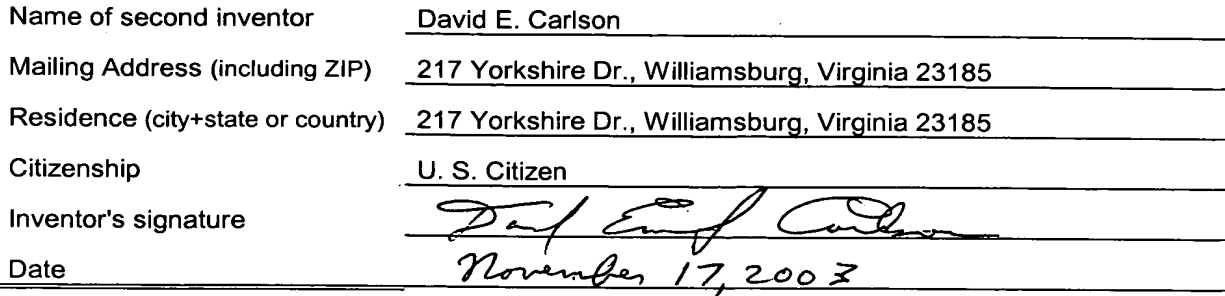 Name of second inventor David E. Carlson
Mailing Address (including ZIP) 217 Yorkshire Dr., Williamsburg, Virginia 23185
Residence (city+state or country) 217 Yorkshire Dr., Williamsburg, Virginia 23185
Citizenship U. S. Citizen
Inventor's signature David Emil Carlson
Date November 17, 2003